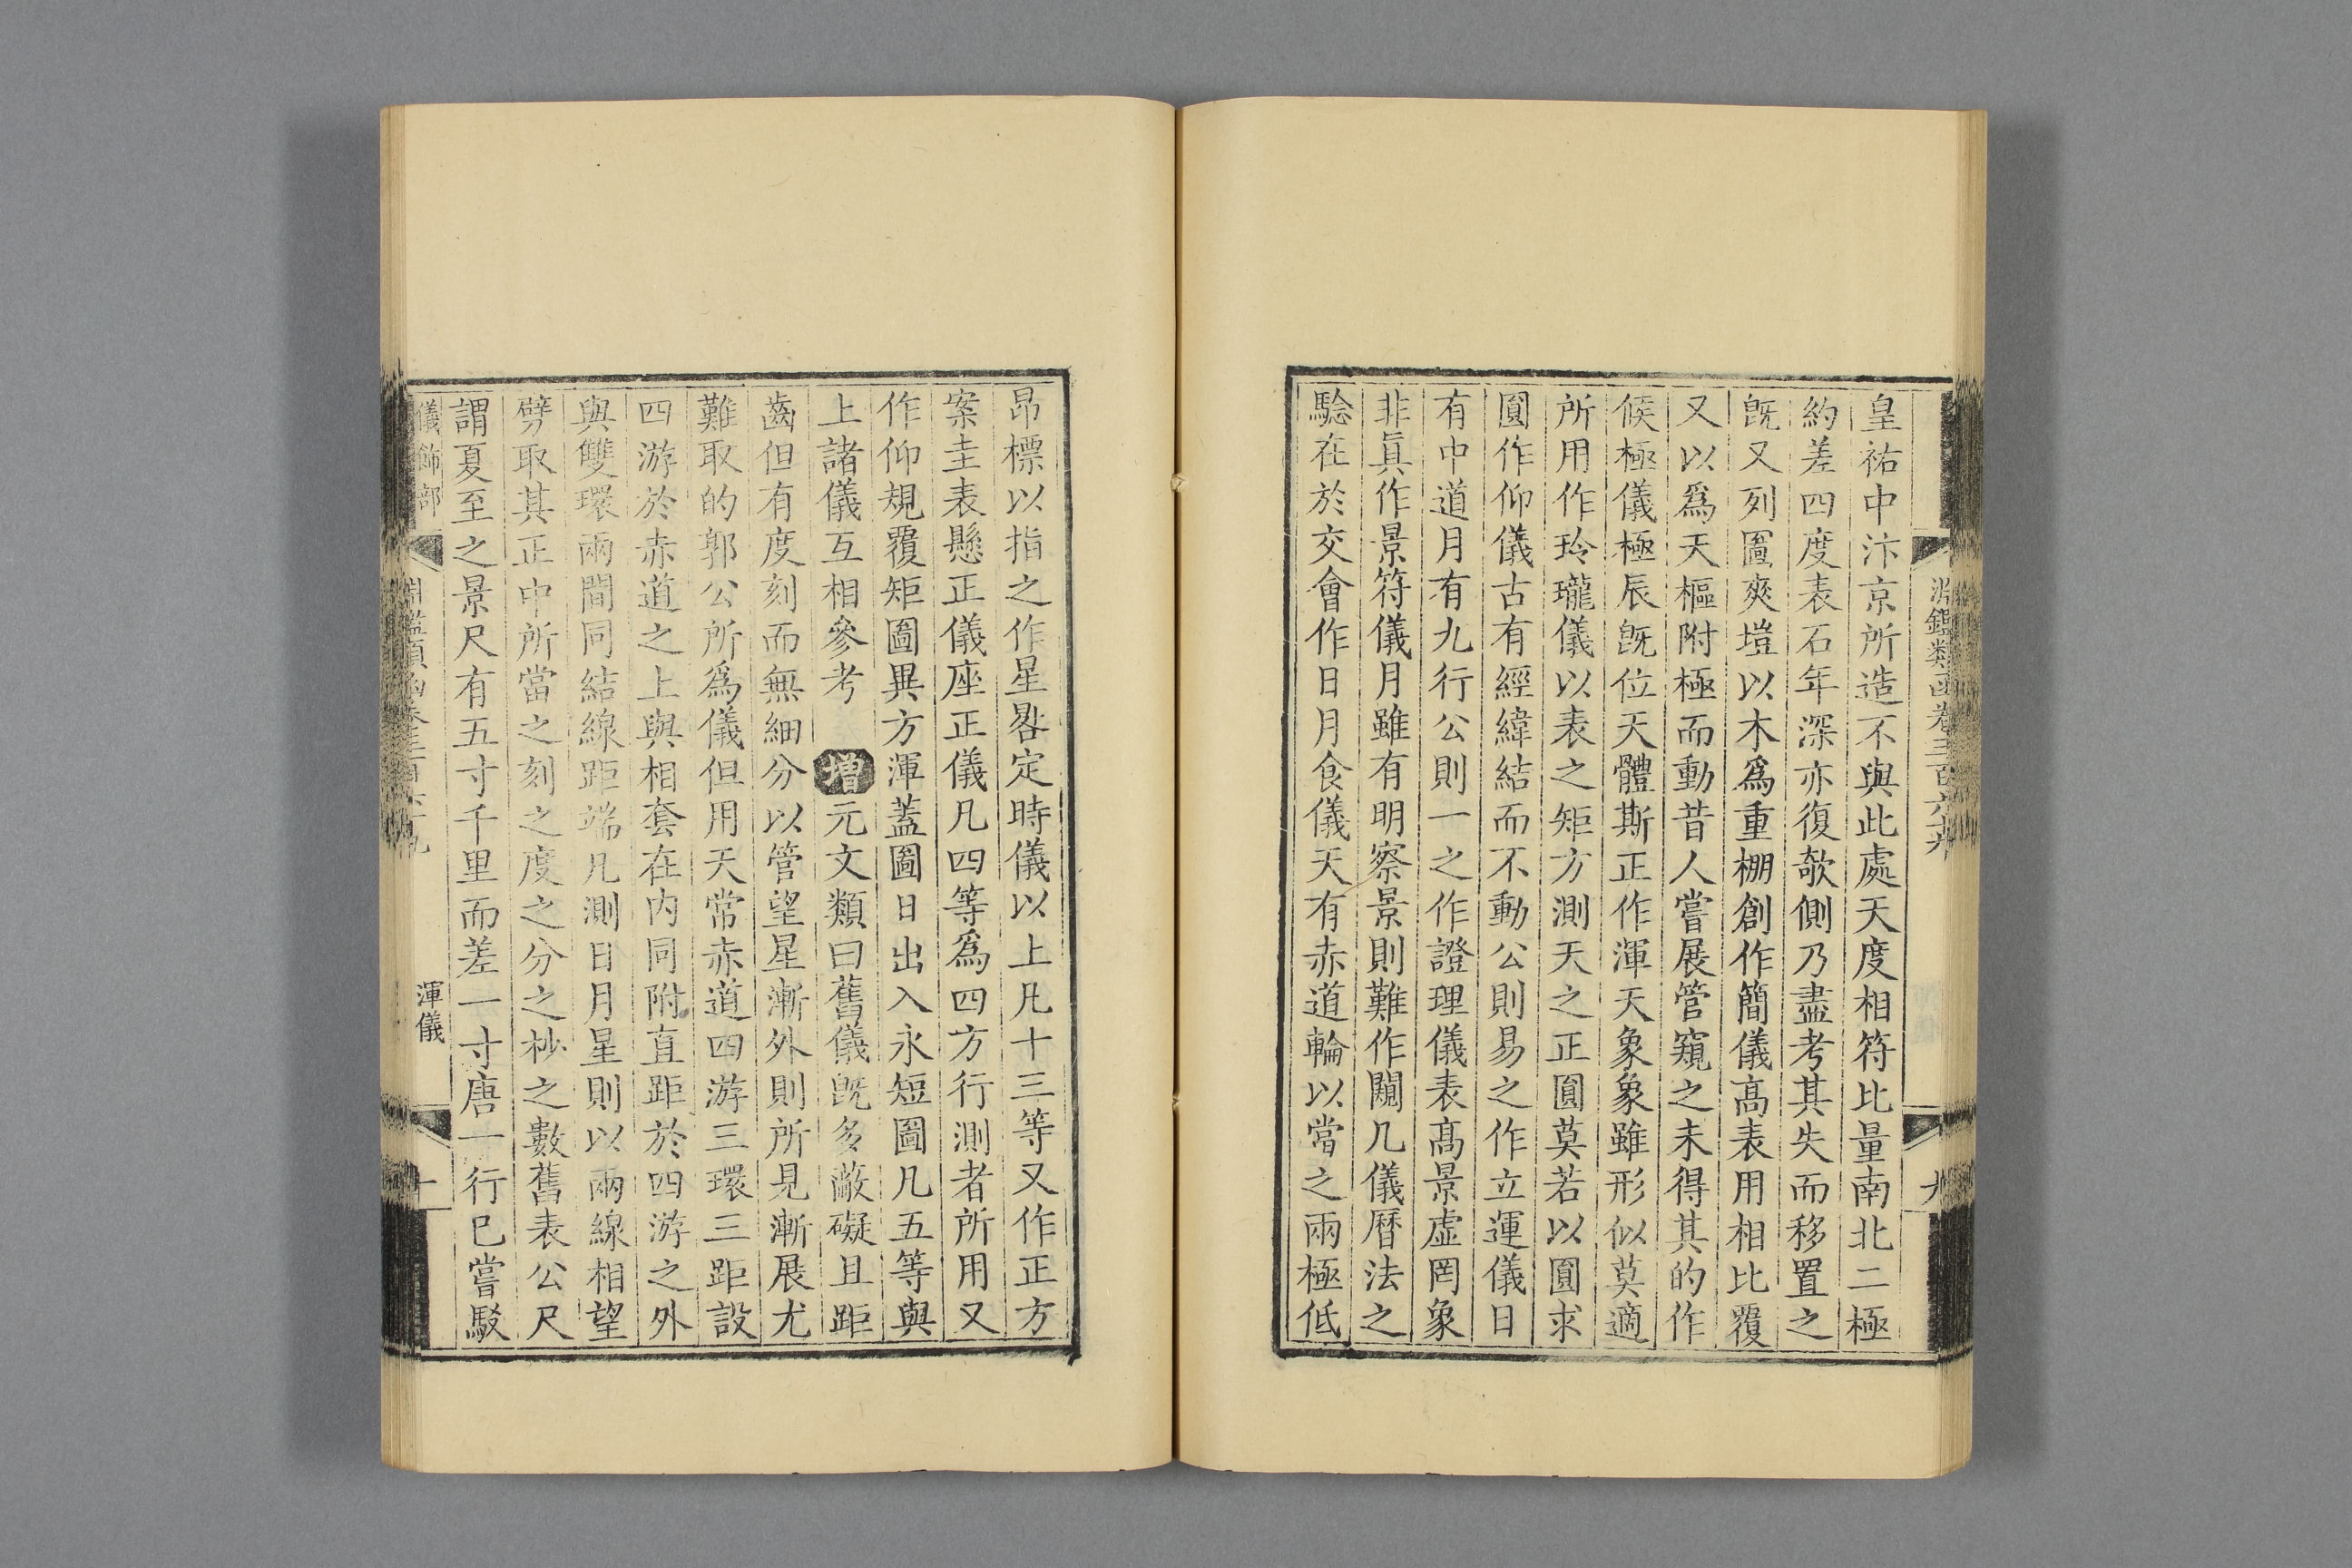 淵鑑類函卷三百六十九
九
皇祐中汴京所造不與此處天度相符比量南北二極
約差四度表石年深亦復欹側乃盡考其失而移置之
旣又列圖爽塏以木爲重棚創作簡儀高表用相比覆
又以爲天樞附極而動昔人嘗展管窺之未得其的作
候極儀極辰旣位天體斯正作渾天象象雖形似莫適
所用作玲瓏儀以表之矩方測天之正圓莫若以圓求
圓作仰儀古有經緯結而不動公則易之作立運儀日
有中道月有九行公則一之作證理儀表高景虛罔象
非眞作景符儀月雖有明察景則難作闚几儀曆法之
驗在於交會作日月食儀天有赤道輪以當之兩極低
昂標以指之作星晷定時儀以上凡十三等又作正方
案圭表懸正儀座正儀凡四等爲四方行測者所用又
作仰規覆矩圖異方渾蓋圖日出入永短圖凡五等與
上諸儀互相參考 增元文類曰舊儀旣多蔽礙且距
齒但有度刻而無細分以管望星漸外則所見漸展尤
難取的郭公所爲儀但用天常赤道四游三環三距設
四游於赤道之上與相套在内同附直距於四游之外
與雙環兩間同結線距端凡測日月星則以兩線相望
劈取其正中所當之刻之度之分之杪之數舊表公尺
謂夏至之景尺有五寸千里而差一寸唐一行已嘗駁
儀飾部
淵鑑類函卷三百六十九
渾儀
十